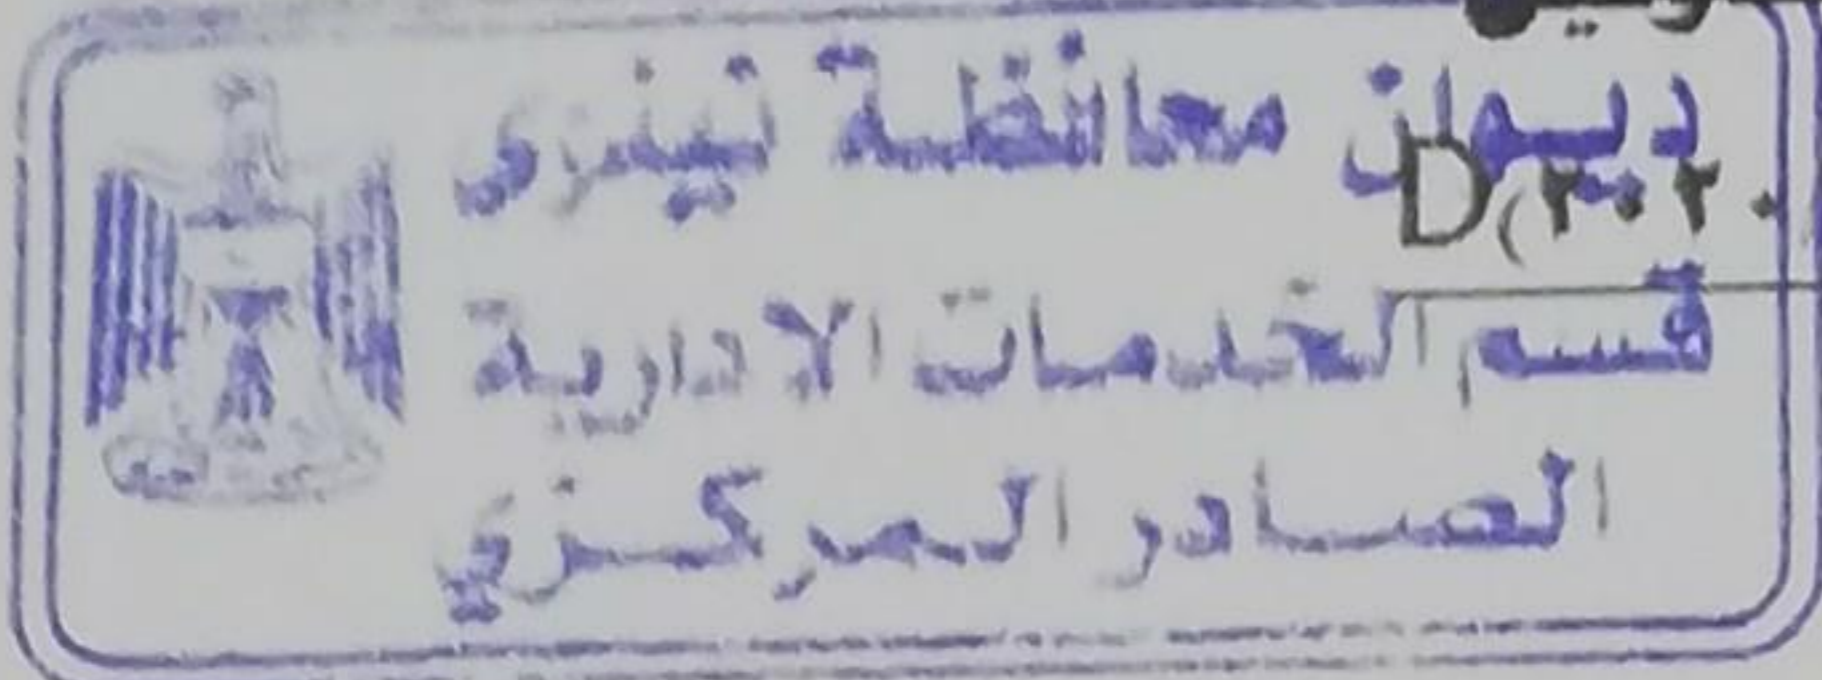 ديوان محافظة نينوى
D(٢٠٢٠
قسم الخدمات الادارية
الصادر المركزي